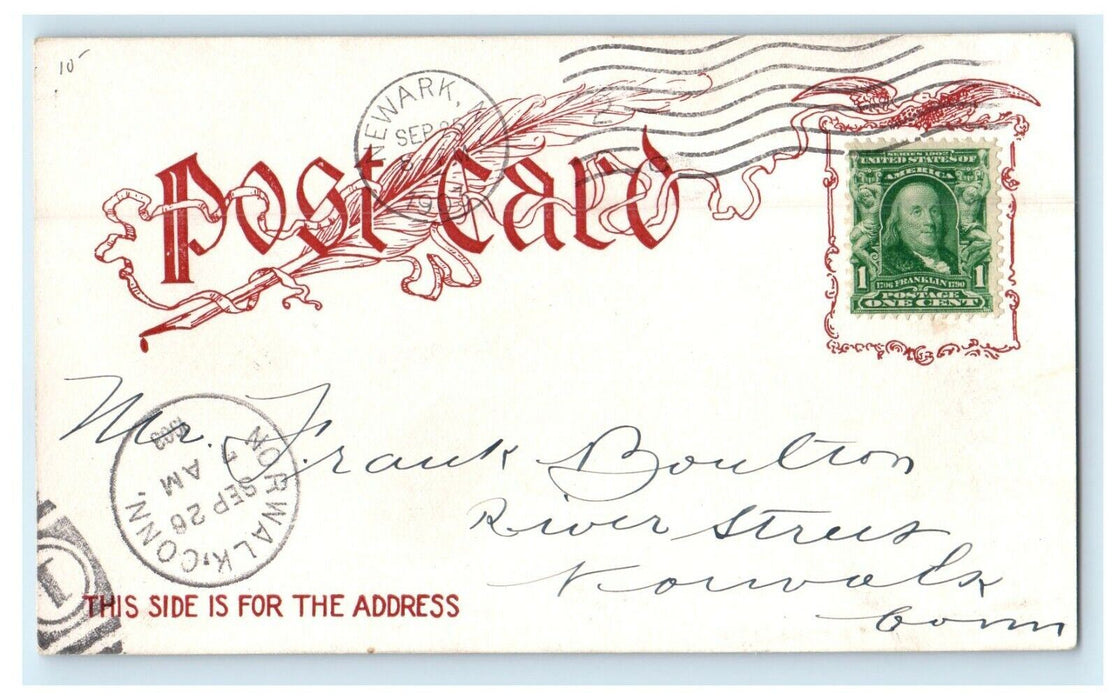 10-
NEWARK, N
SEP 25
Post Card
SERIES 1902
UNITED STATES OF
AMERICA
1 1
1706 FRANKLIN 1790
POSTAGE
ONE CENT
Mr. Frank Boulton
River Street
Norwalk
Conn
NORWALK, CONN.
SEP 26
7 AM
1
THIS SIDE IS FOR THE ADDRESS